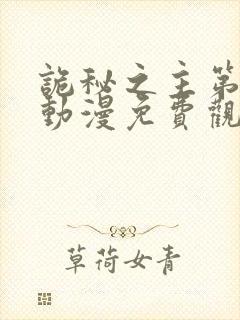 詭秘之主第
動漫免費觀
草荷女青